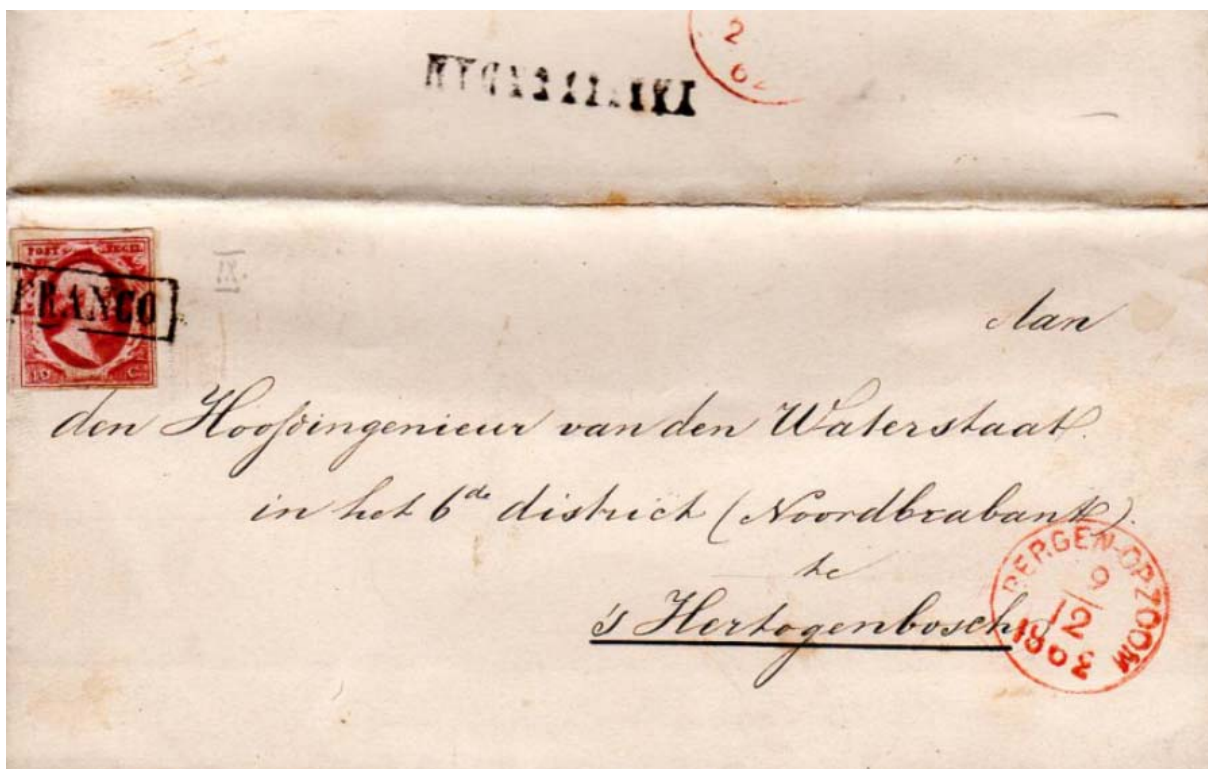 2
62
FRANCO
POST ZEGEL
10 C.
IX.
Aan
den Hoofdingenieur van den Waterstaat.
in het 6de district (Noordbrabant).
te
's Hertogenbosch
BERGEN-OP-ZOOM
9
12
1863